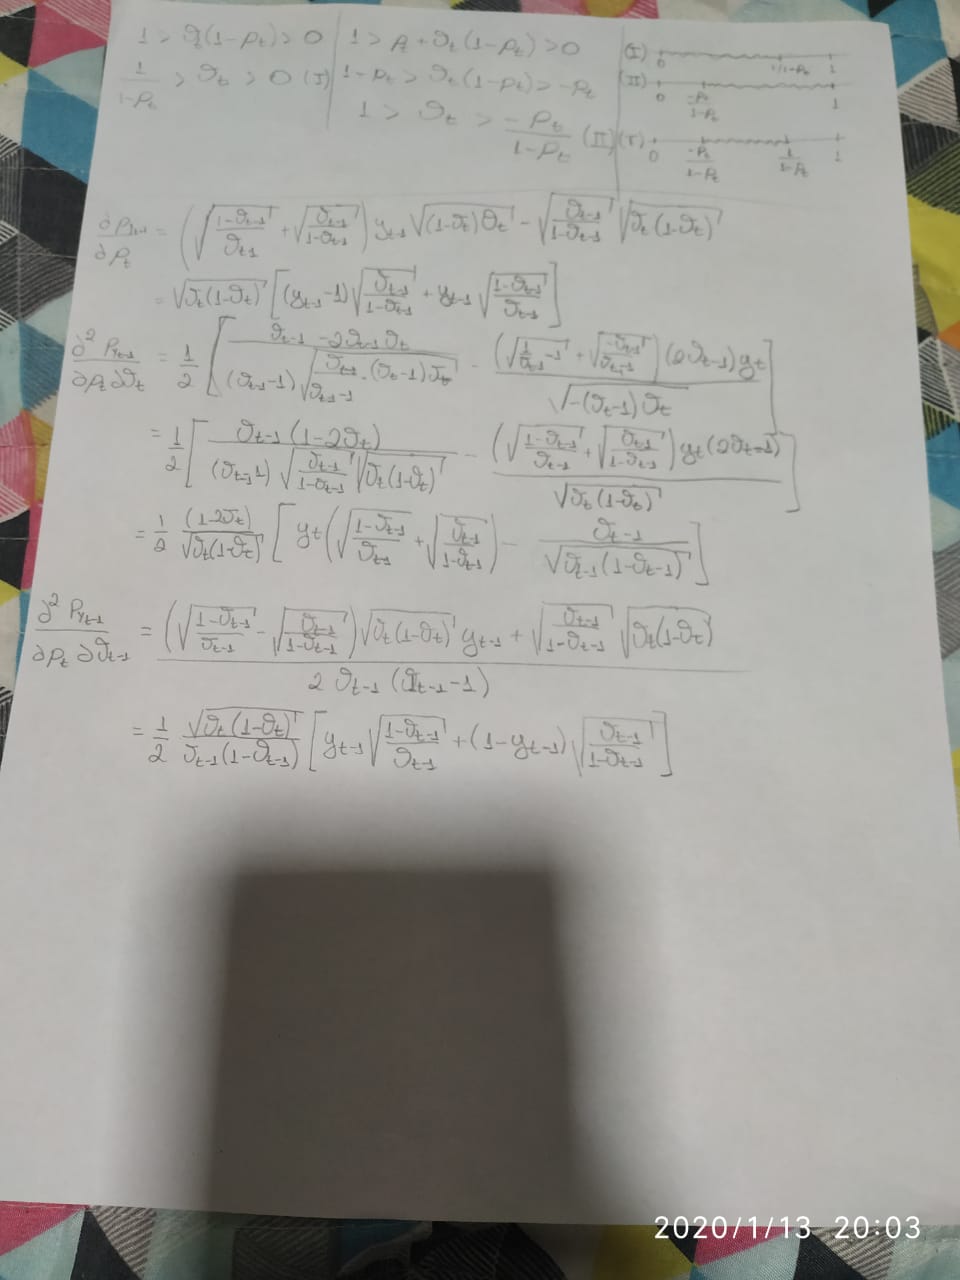 1 > ϑ_t(1-ρ_t) > 0 | 1 > ρ_t + ϑ_t(1-ρ_t) > 0
1/(1-ρ_t) > ϑ_t > 0 (I) | 1-ρ_t > ϑ_t(1-ρ_t) > -ρ_t
1 > ϑ_t > -ρ_t/(1-ρ_t) (II)
(I) 0 1/1-ρ_t 1
(II) 0 -ρ_t/(1-ρ_t) 1
(T) 0 -ρ_t/(1-ρ_t) 1/(1-ρ_t) 1
∂P_{y_{t-1}}/∂ρ_t = (√((1-ϑ_{t-1})/ϑ_{t-1}) + √(ϑ_{t-1}/(1-ϑ_{t-1}))) y_{t-1} √((1-ϑ_t)ϑ_t) - √(ϑ_{t-1}/(1-ϑ_{t-1})) √(ϑ_t(1-ϑ_t))
= √(ϑ_t(1-ϑ_t)) [(y_{t-1}-1)√(ϑ_{t-1}/(1-ϑ_{t-1})) + y_{t-1} √((1-ϑ_{t-1})/ϑ_{t-1})]
∂²P_{y_{t-1}}/∂ρ_t∂ϑ_t = 1/2 [(ϑ_{t-1} - 2ϑ_{t-1}ϑ_t)/((ϑ_{t-1}-1)√(ϑ_{t-1}/(ϑ_{t-1}-1) · (ϑ_t-1)ϑ_t)) - (√(1/ϑ_{t-1} -1) + √(-ϑ_{t-1}/(ϑ_{t-1}-1)))(2ϑ_t-1)y_t/√(-(ϑ_t-1)ϑ_t)]
= 1/2 [ϑ_{t-1}(1-2ϑ_t)/((ϑ_{t-1}-1)√(ϑ_{t-1}/(1-ϑ_{t-1}))√(ϑ_t(1-ϑ_t))) - (√((1-ϑ_{t-1})/ϑ_{t-1}) + √(ϑ_{t-1}/(1-ϑ_{t-1})))y_t(2ϑ_t-1)/√(ϑ_t(1-ϑ_t))]
= 1/2 (1-2ϑ_t)/√(ϑ_t(1-ϑ_t)) [y_t(√((1-ϑ_{t-1})/ϑ_{t-1}) + √(ϑ_{t-1}/(1-ϑ_{t-1}))) - ϑ_{t-1}/√(ϑ_{t-1}(1-ϑ_{t-1}))]
∂²P_{y_{t-1}}/∂ρ_t∂ϑ_{t-1} = ((√((1-ϑ_{t-1})/ϑ_{t-1}) - √(ϑ_{t-1}/(1-ϑ_{t-1})))√(ϑ_t(1-ϑ_t)) y_{t-1} + √(ϑ_{t-1}/(1-ϑ_{t-1})) √(ϑ_t(1-ϑ_t)))/(2ϑ_{t-1}(ϑ_{t-1}-1))
= 1/2 √(ϑ_t(1-ϑ_t))/(ϑ_{t-1}(1-ϑ_{t-1})) [y_{t-1}√((1-ϑ_{t-1})/ϑ_{t-1}) + (1-y_{t-1})√(ϑ_{t-1}/(1-ϑ_{t-1}))]
2020/1/13 20:03